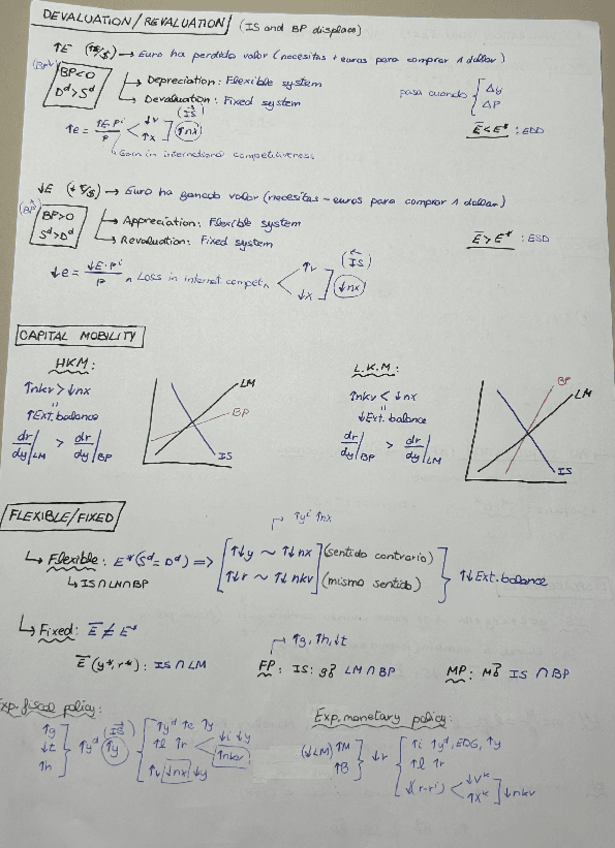 DEVALUATION / REVALUATION (IS and BP displace)
↑E (€/$) → Euro ha perdido valor (necesitas + euros para comprar 1 dollar)
BP<0
D^d>S^d
↳ Depreciation: Flexible system
↳ Devaluation: Fixed system
pasa cuando { Δy
ΔP
↑e = ↑E·P^i / P < ↓v ↑x ] ↑nx (IS→)
Ē<E*: EDD
Gain in international competitiveness
↓E (€/$) → Euro ha ganado valor (necesitas - euros para comprar 1 dollar)
BP>0
S^d>D^d
↳ Appreciation: Flexible system
↳ Revaluation: Fixed system
Ē>E*: ESD
↓e = ↓E·P^i / P Loss in internat compet. < ↑v ↓x ] ↓nx (IS←)
CAPITAL MOBILITY
HKM:
↑nkv > ↓nx
"
↑Ext. balance
dr/dy|LM > dr/dy|BP
LM
BP
IS
L.K.M:
↑nkv < ↓nx
"
↓Ext. balance
dr/dy|BP > dr/dy|LM
BP
LM
IS
FLEXIBLE/FIXED
↑y^i ↑nx
↳ Flexible: E*(S^d=D^d) => [ ↑↓y ~ ↑↓nx ] (sentido contrario)
↳ IS∩LM∩BP
[ ↑↓r ~ ↑↓nkv ] (mismo sentido) } ↑↓Ext. balance
↳ Fixed: Ē ≠ E*
↑g, ↑h, ↓t
Ē(y*,r*): IS ∩ LM
FP: IS: g? LM∩BP
MP: M? IS ∩ BP
Exp. fiscal policy:
↑g
↓t
↑h
} ↑y^d ↑y (IS→)
↑y^d ↑e ↑y
↑l ↑r < ↓i ↓y
↑nkv
↑v ↓nx ↓y
Exp. monetary policy:
(↓LM) ↑M
↑B
} ↓r
↑i ↑y^d, EDG, ↑y
↑l ↑r
↓(r-r^i) < ↓v^k ↑x^k ] ↓nkv